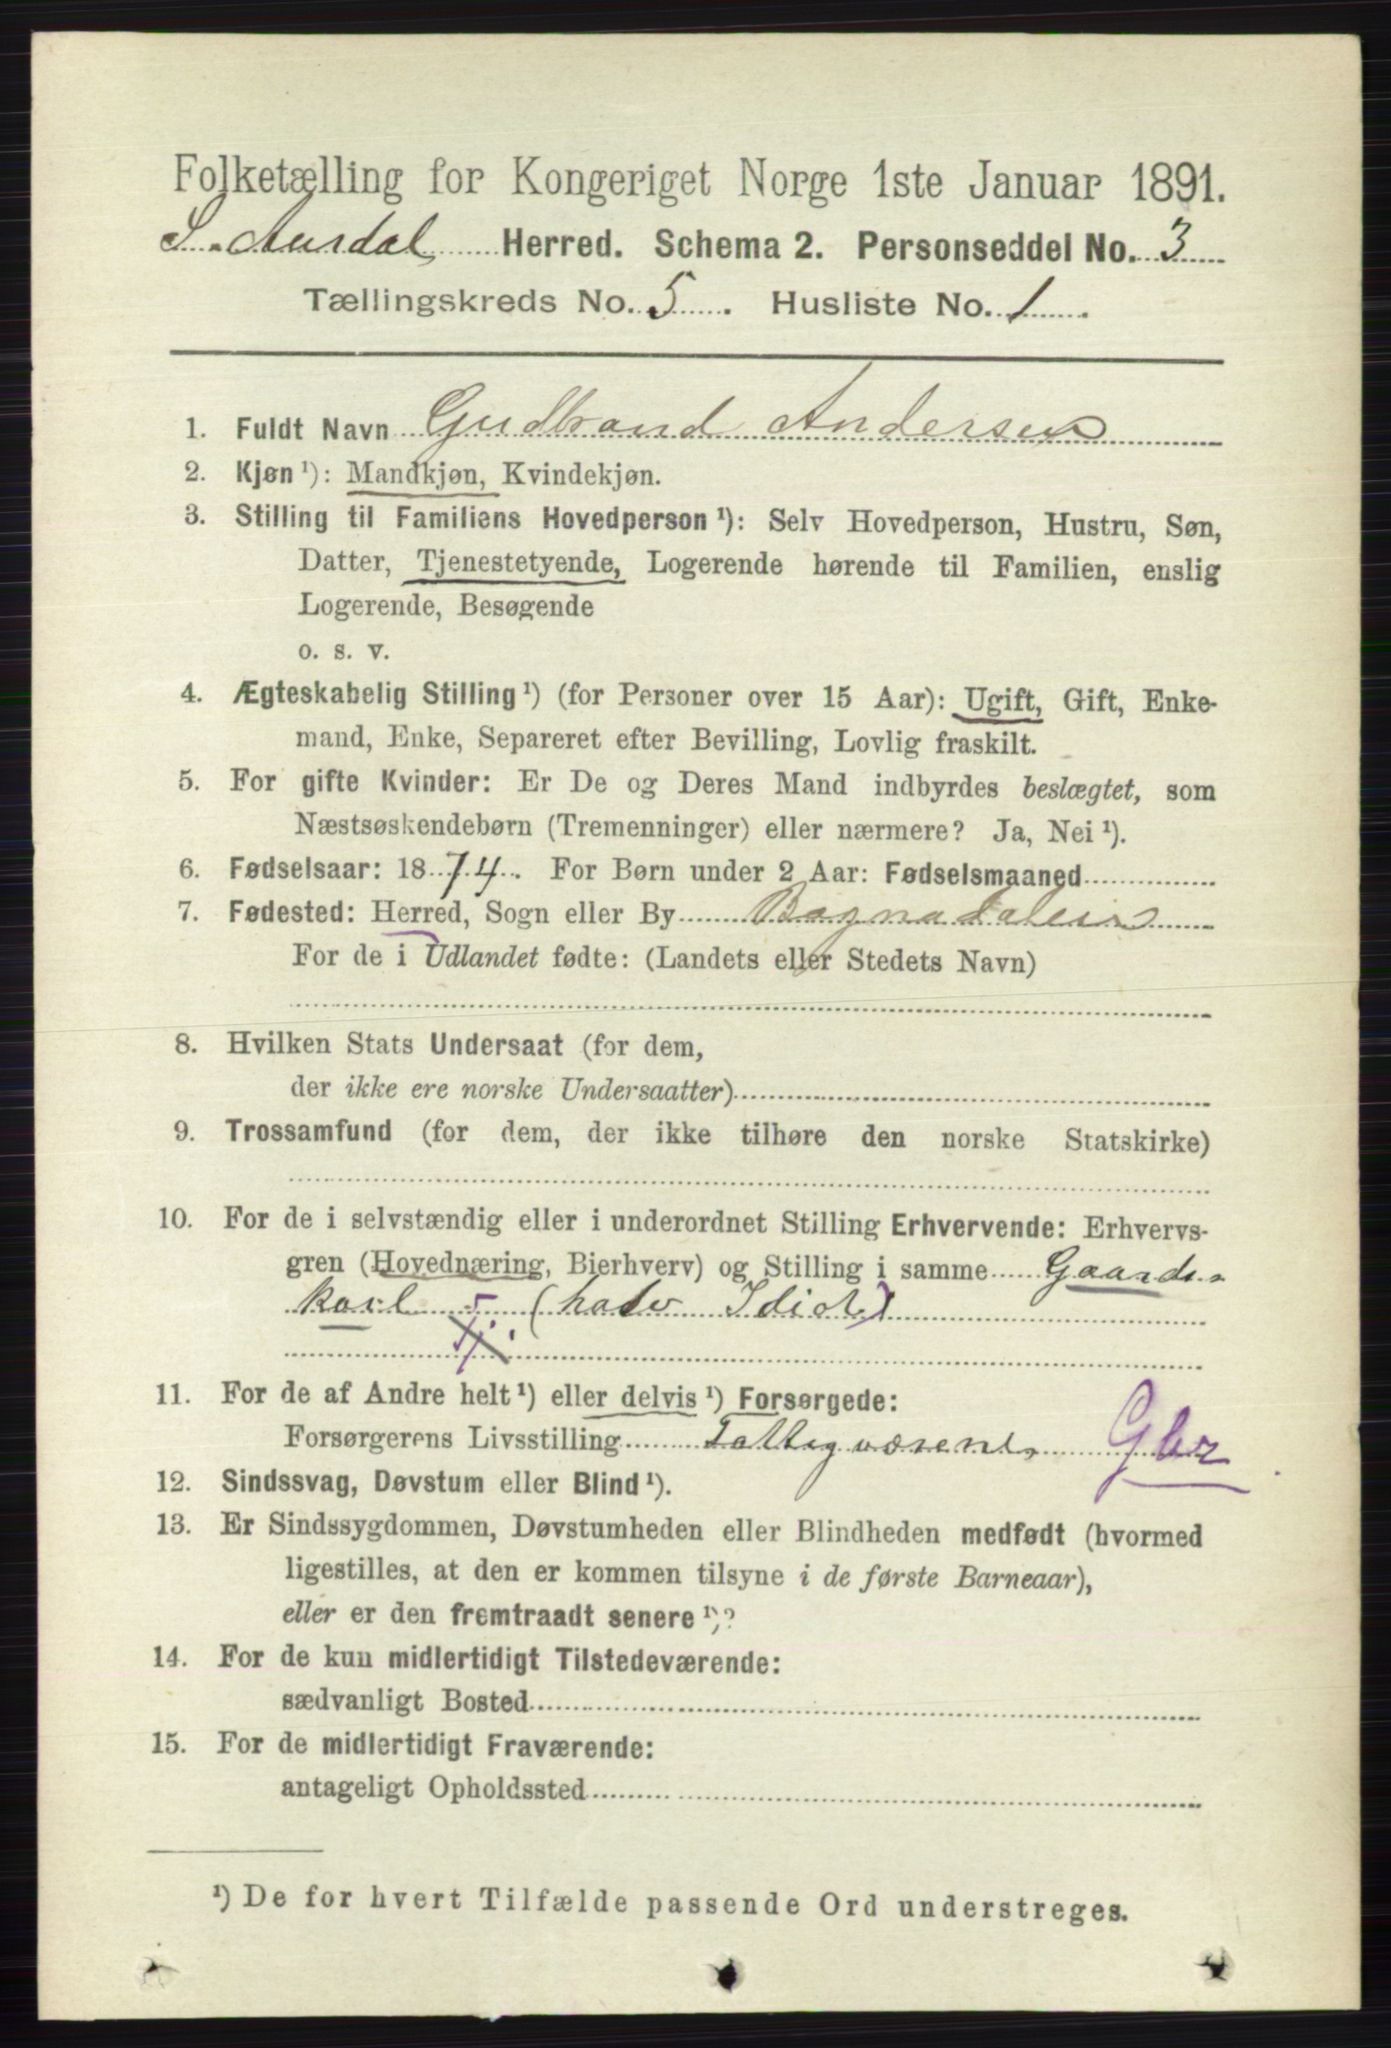 Folketælling for Kongeriget Norge 1ste Januar 1891.
S. Aurdal Herred. Schema 2. Personseddel No. 3
Tællingskreds No. 5. Husliste No. 1
1. Fuldt Navn Gudbrand Andersen
2. Kjøn ¹): Mandkjøn, Kvindekjøn.
3. Stilling til Familiens Hovedperson ¹): Selv Hovedperson, Hustru, Søn,
Datter, Tjenestetyende, Logerende hørende til Familien, enslig
Logerende, Besøgende
o. s. v.
4. Ægteskabelig Stilling ¹) (for Personer over 15 Aar): Ugift, Gift, Enke-
mand, Enke, Separeret efter Bevilling, Lovlig fraskilt.
5. For gifte Kvinder: Er De og Deres Mand indbyrdes beslægtet, som
Næstsøskendebørn (Tremenninger) eller nærmere? Ja, Nei ¹).
6. Fødselsaar: 1874. For Børn under 2 Aar: Fødselsmaaned
7. Fødested: Herred, Sogn eller By Bagnadalen
For de i Udlandet fødte: (Landets eller Stedets Navn)
8. Hvilken Stats Undersaat (for dem,
der ikke ere norske Undersaatter)
9. Trossamfund (for dem, der ikke tilhøre den norske Statskirke)
10. For de i selvstændig eller i underordnet Stilling Erhvervende: Erhvervs-
gren (Hovednæring, Bierhverv) og Stilling i samme Gaards-
karl (halv Idiot)
11. For de af Andre helt ¹) eller delvis ¹) Forsørgede:
Forsørgerens Livsstilling Fattigvæsenet.
12. Sindssvag, Døvstum eller Blind ¹).
13. Er Sindssygdommen, Døvstumheden eller Blindheden medfødt (hvormed
ligestilles, at den er kommen tilsyne i de første Barneaar),
eller er den fremtraadt senere ¹)?
14. For de kun midlertidigt Tilstedeværende:
sædvanligt Bosted
15. For de midlertidigt Fraværende:
antageligt Opholdssted
¹) De for hvert Tilfælde passende Ord understreges.